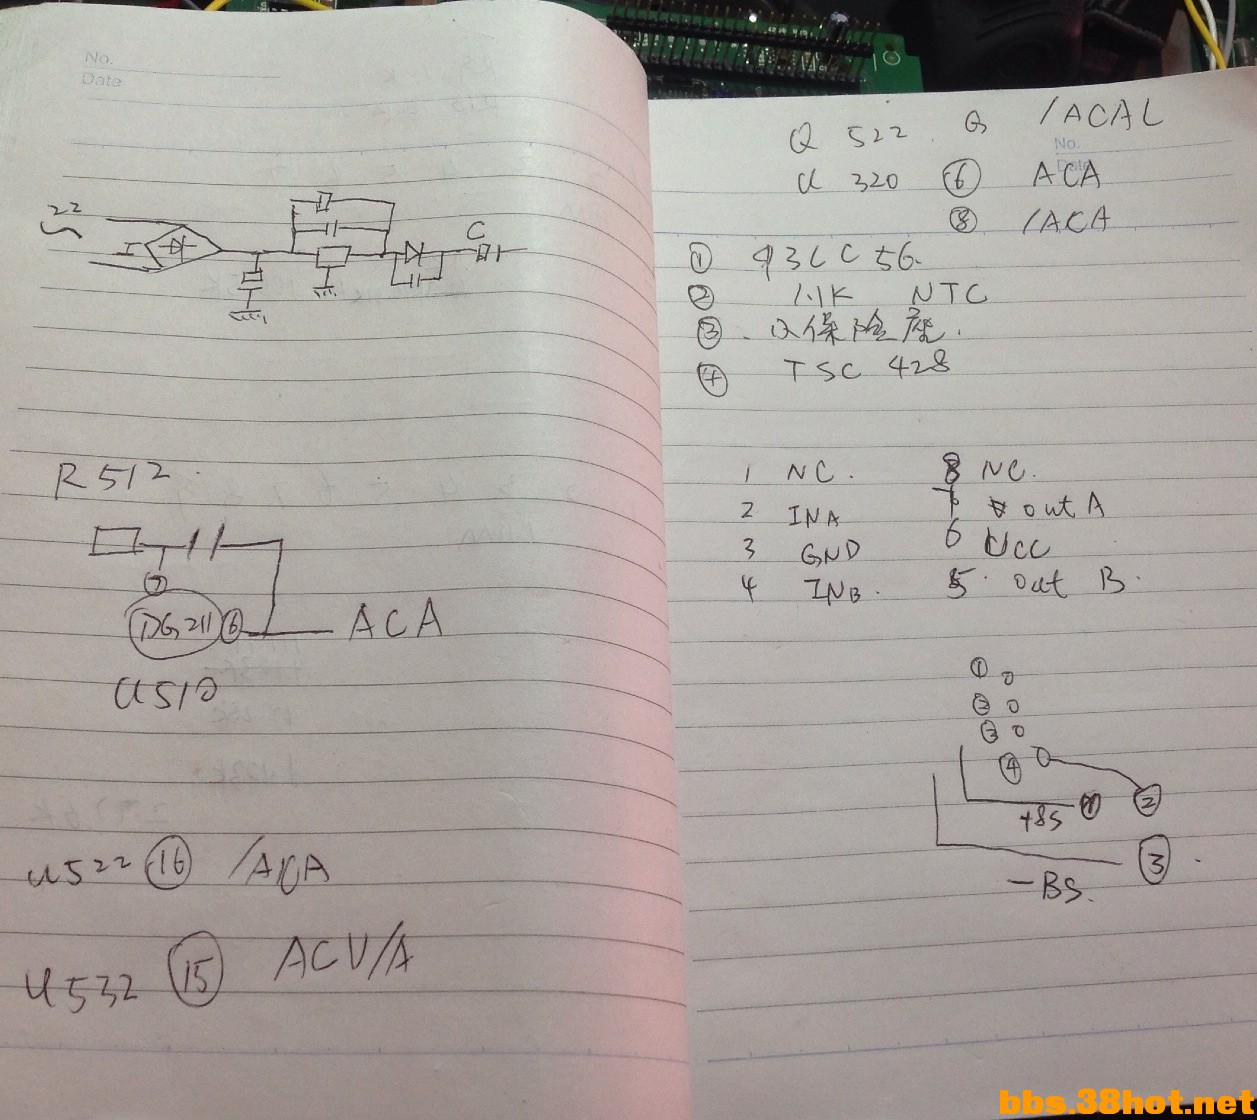 No.
Date
22
I
C
R 512
⑦
DG211 ⑥ ACA
U510
U522 ⑯ /ACA
U532 ⑮ ACV/A
Q 522 G /ACAL
No.
Date
U 320 ⑥ ACA
⑧ /ACA
① 93LC56.
② 1.1K NTC
③ 保险座.
④ TSC 428
1 NC. 8 NC.
2 INA 7 out A
3 GND 6 VCC
4 INB. 5. out B.
①
②
③
④
+BS ②
③
-BS.
bbs.38hot.net